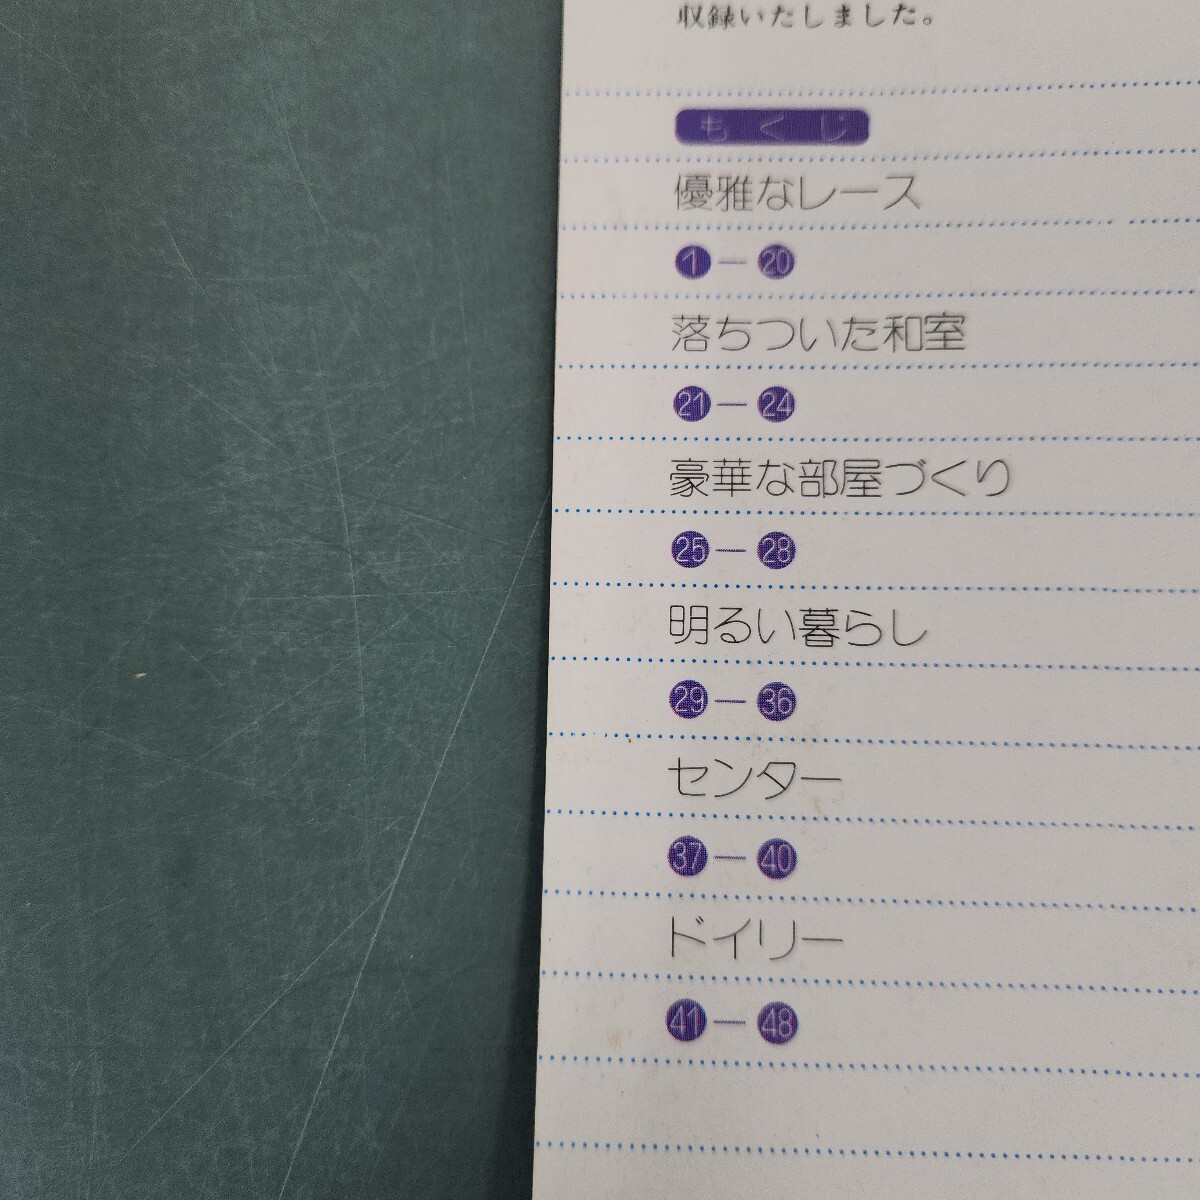 収録いたしました。
もくじ
優雅なレース
1—20
落ちついた和室
21—24
豪華な部屋づくり
25—28
明るい暮らし
29—36
センター
37—40
ドイリー
41—48